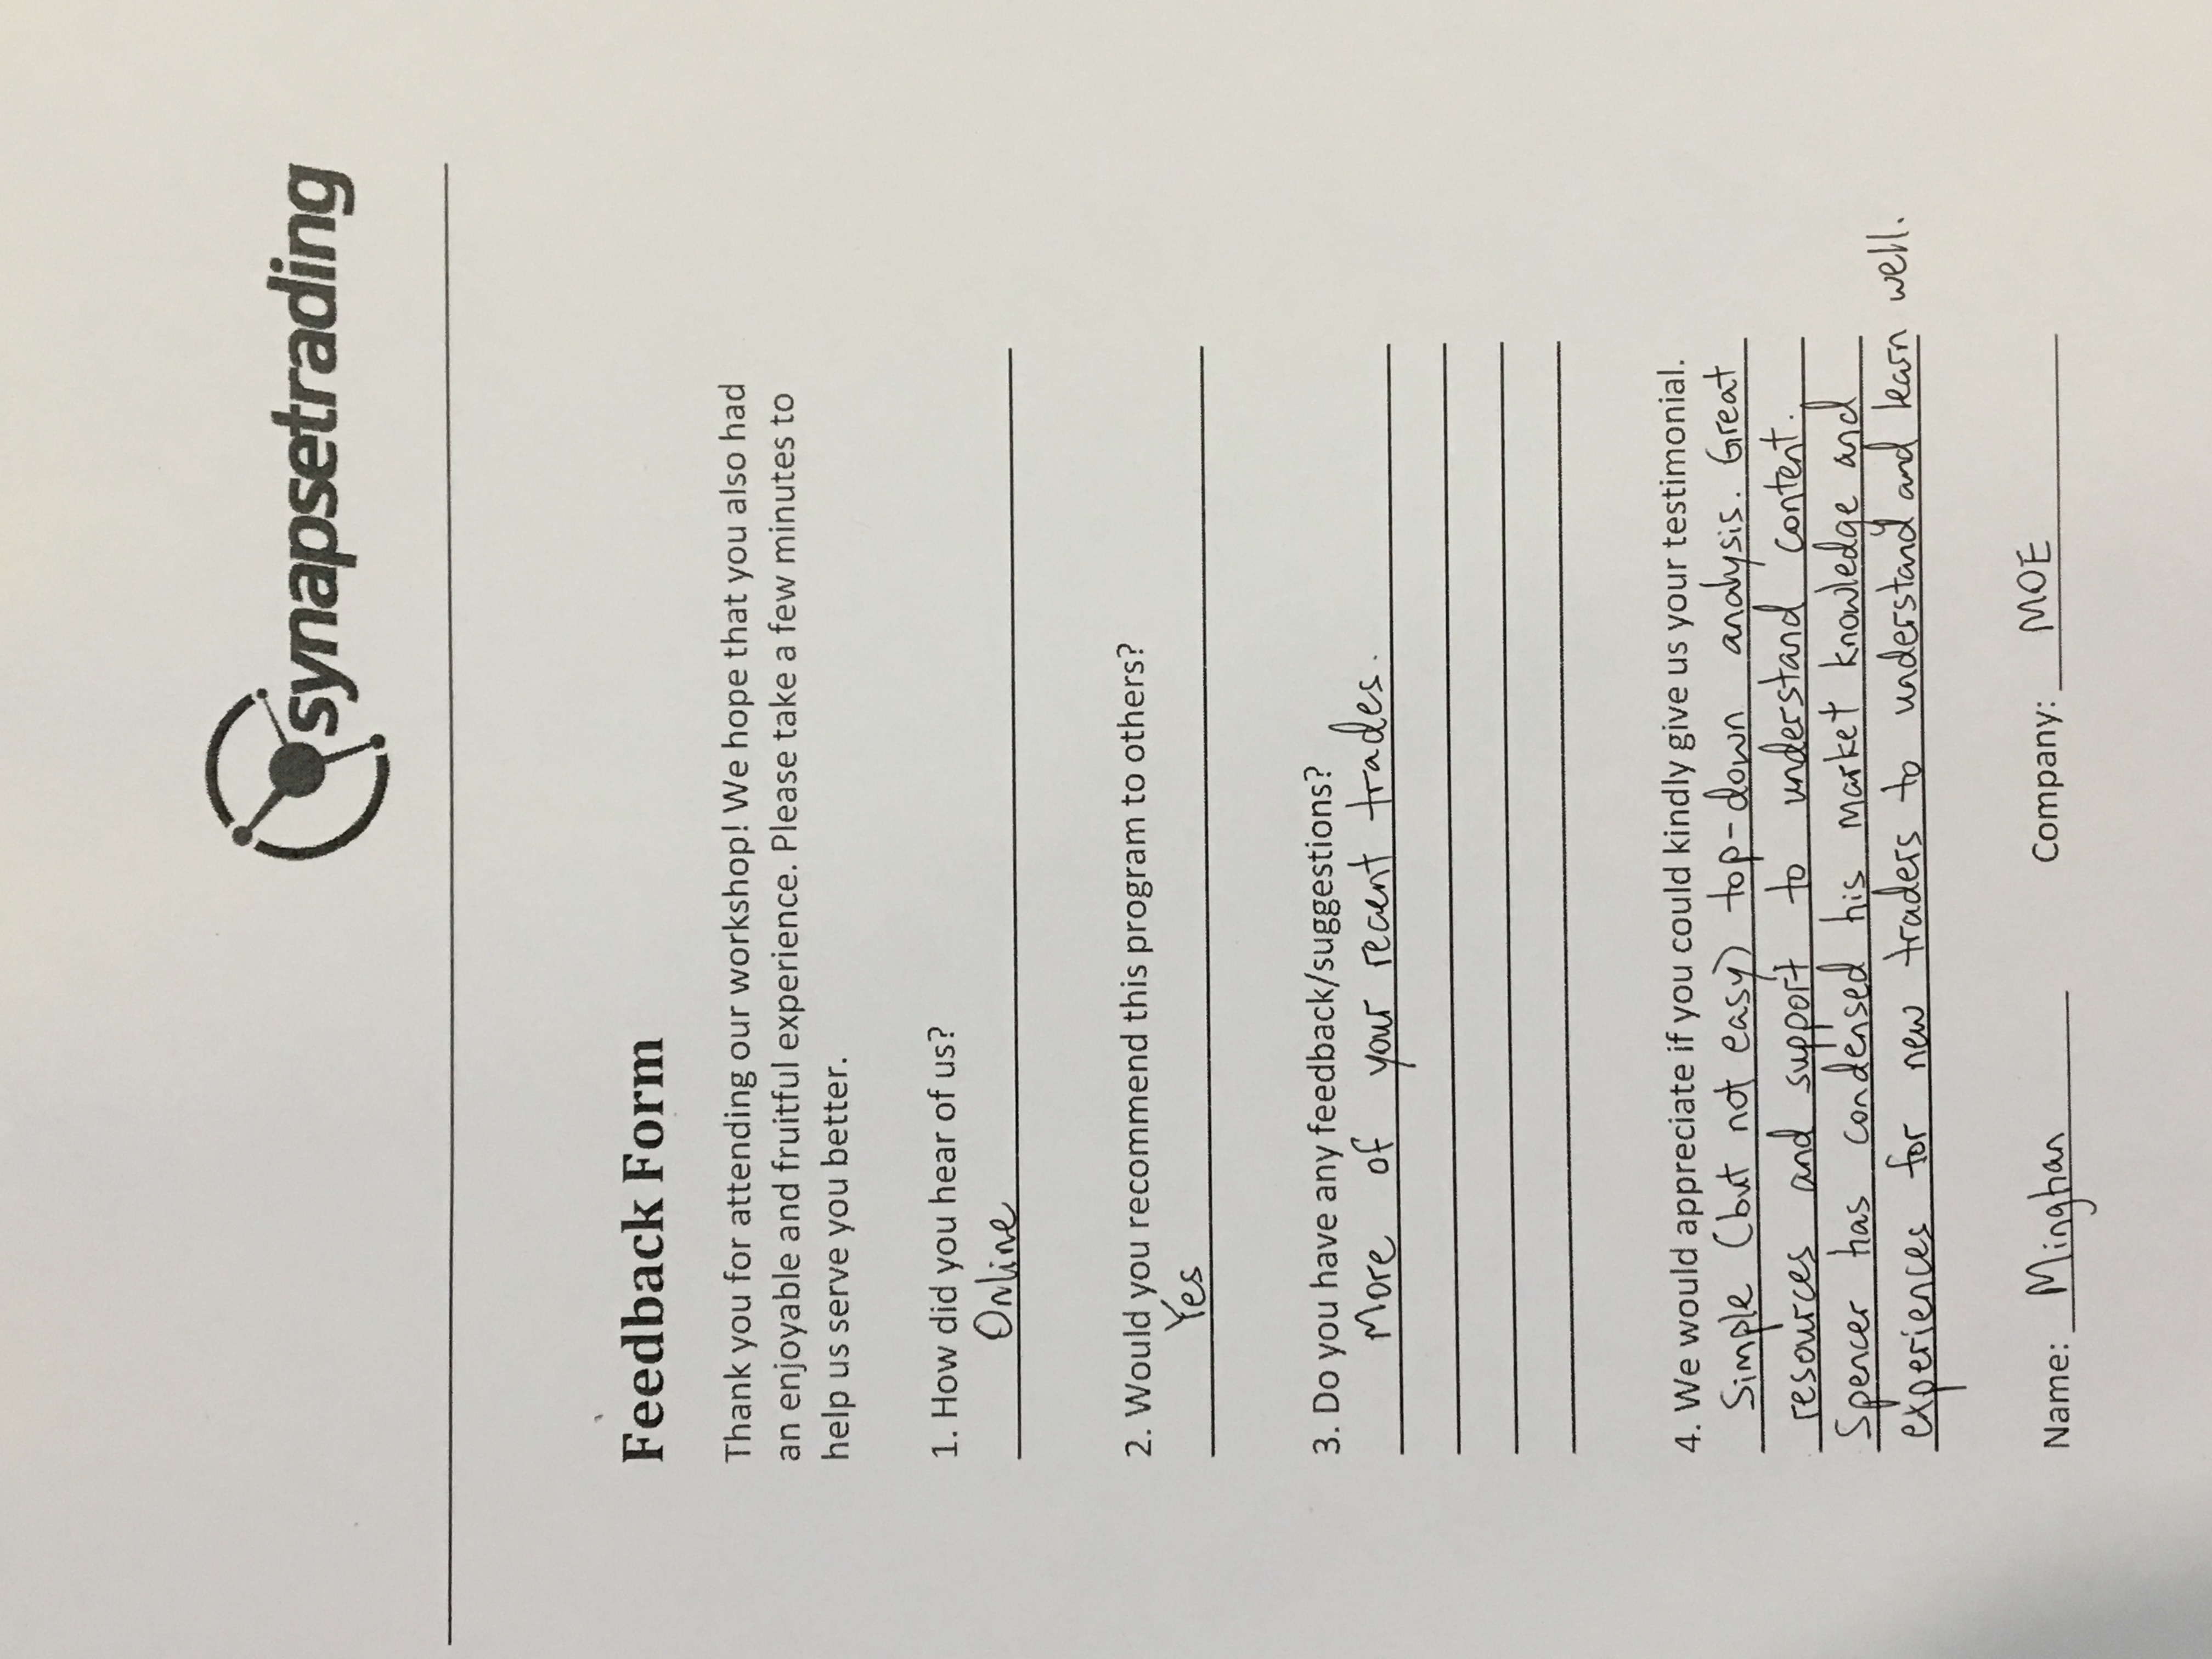 synapsetrading
Feedback Form
Thank you for attending our workshop! We hope that you also had
an enjoyable and fruitful experience. Please take a few minutes to
help us serve you better.
1. How did you hear of us?
Online
2. Would you recommend this program to others?
Yes
3. Do you have any feedback/suggestions?
More of your recent trades.
4. We would appreciate if you could kindly give us your testimonial.
Simple (but not easy) top-down analysis. Great
resources and support to understand content.
Spencer has condensed his market knowledge and
experiences for new traders to understand and learn well.
Name: Minghan Company: MOE